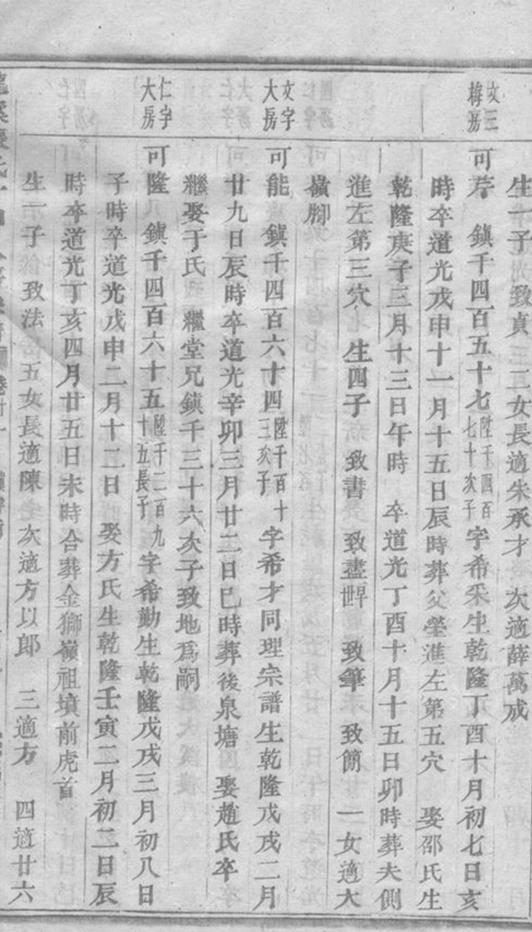 生一子 致貞 二女長適朱承才 次適薛萬成
文三梅房 可芹 鎮千四百五十七 陞千四百七十次子 字希采生乾隆丁酉十月初七日亥
時卒道光戊申十一月十五日辰時葬父塋進左第五穴 娶邵氏生
乾隆庚子三月十三日午時 卒道光丁酉十月十五日卯時葬夫側
進左第三穴 生四子 致書 致盡 致筆 致簡 一女適大
橫腳
文字大房 可能 鎮千四百六十四 陞千百十三次子 字希才同理宗譜生乾隆戊戌二月
廿九日辰時卒道光辛卯三月廿二日巳時葬後泉塘 娶趙氏卒
繼娶于氏 繼堂兄鎮千三十六次子致地為嗣
仁字大房 可隆 鎮千四百六十五 陞千二百九十五長子 字希勤生乾隆戊戌三月初八日
子時卒道光戊申二月十二日 娶方氏生乾隆壬寅二月初二日辰
時卒道光丁亥四月廿五日未時合葬金獅嶺祖墳前虎首
生一子 致法 五女長適陳 次適方以郎 三適方 四適廿六